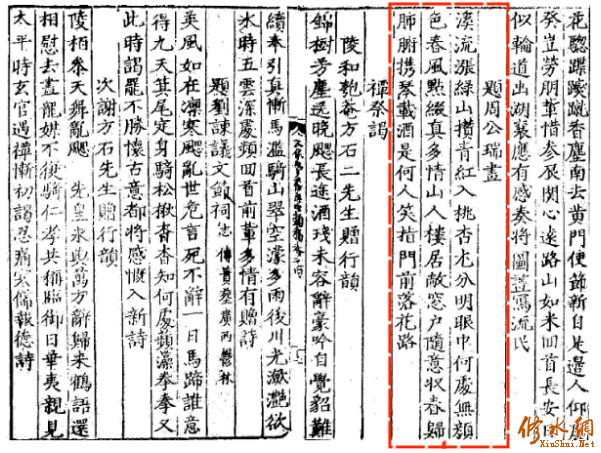 花驄蹀躞蹴香塵南去黃門使節新自是邊人仰慶
癸豈勞朋輩惜參辰關心遠路山如米回首長安日
似輪道出湖襄應有感奏將圖畫寫流民
題周公瑞畫
漢流漲綠山攢青紅入桃杏尤分明眼中何處無顏
色春風點綴真多情山人樓居敞窗戶隨意收春歸
肺腑攜琴載酒是何人笑指門前落花路
禫祭謁
陵和匏菴方石二先生贈行韻
錦樹芳塵遠曉颸長途酒琖未容辭豪吟自覺貂難
續奉引真慚馬濫騎山翠空濛多雨後川光瀲灩欲
氷時五雲深處頻回首前輩多情有贈詩
題劉諫議文節祠志傳賁葬廣丙鬱林
乘風如在凜寒颸亂世危言死不辭一日馬蹄誰意
得九天箕尾定身騎松楸杳杳知何處蘋藻拳拳又
此時謁罷不勝懷古意都將感慨入新詩
次謝方石先生贈行韻
陵栢參天舞亂颸 先皇永與萬方辭歸來鶴語還
相慰去盡龍媒不復騎仁孝共稱臨御日華夷親見
太平時玄官遇禫慚初謁忍痛宏儒報德詩
修水網
XiuShui.Net